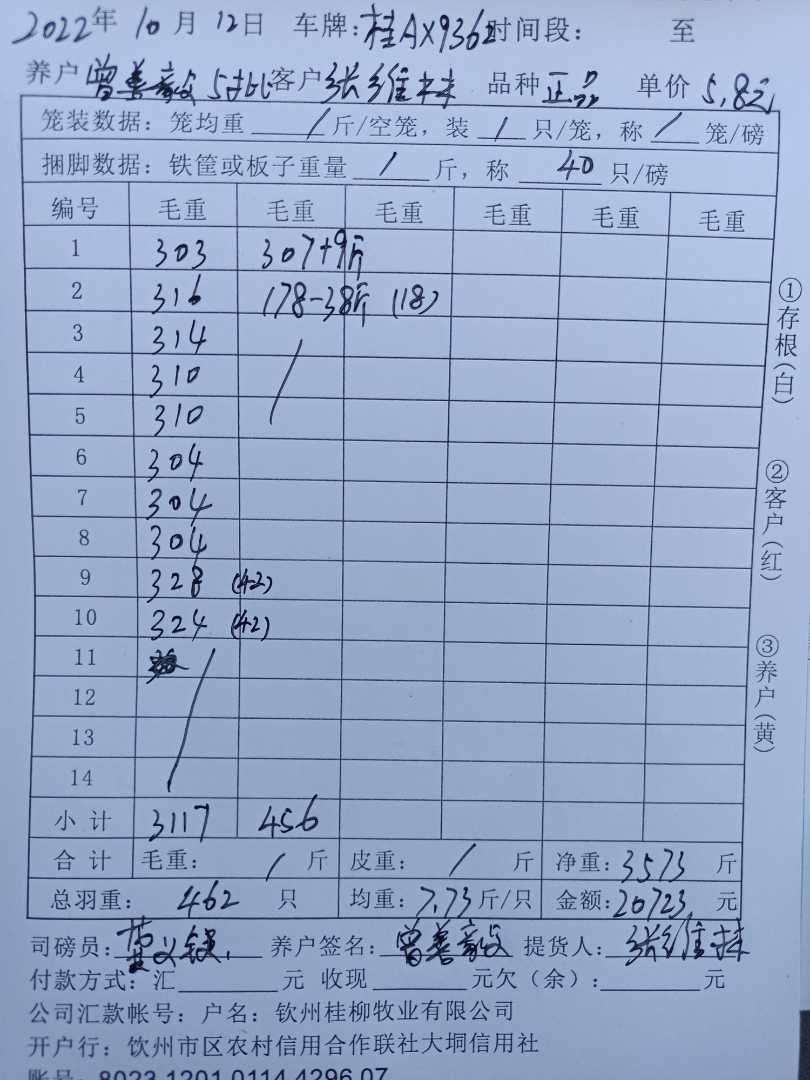 2022年 10月 12日 车牌:桂AX9362时间段: 至
养户曾善毅 客户张维林 品种正品 单价5.8元
笼装数据: 笼均重 / 斤/空笼, 装 / 只/笼, 称 / 笼/磅
捆脚数据: 铁筐或板子重量 / 斤, 称 40 只/磅
编号 毛重 毛重 毛重 毛重 毛重 毛重
1 303 307+9斤
2 316 178-38斤 (18)
3 314 /
4 310
5 310
6 304
7 304
8 304
9 328 (42)
10 324 (42)
11 /
12
13
14
小计 3117 456
合计 毛重: / 斤 皮重: / 斤 净重:3573 斤
总羽重: 462 只 均重:7.73斤/只 金额:20723 元
司磅员: 养户签名:曾善毅 提货人:张维林
付款方式:汇 元 收现 元欠(余): 元
公司汇款帐号: 户名: 钦州桂柳牧业有限公司
开户行: 钦州市区农村信用合作联社大垌信用社
账号: 8023 1201 0114 4296 07
①存根(白)
②客户(红)
③养户(黄)